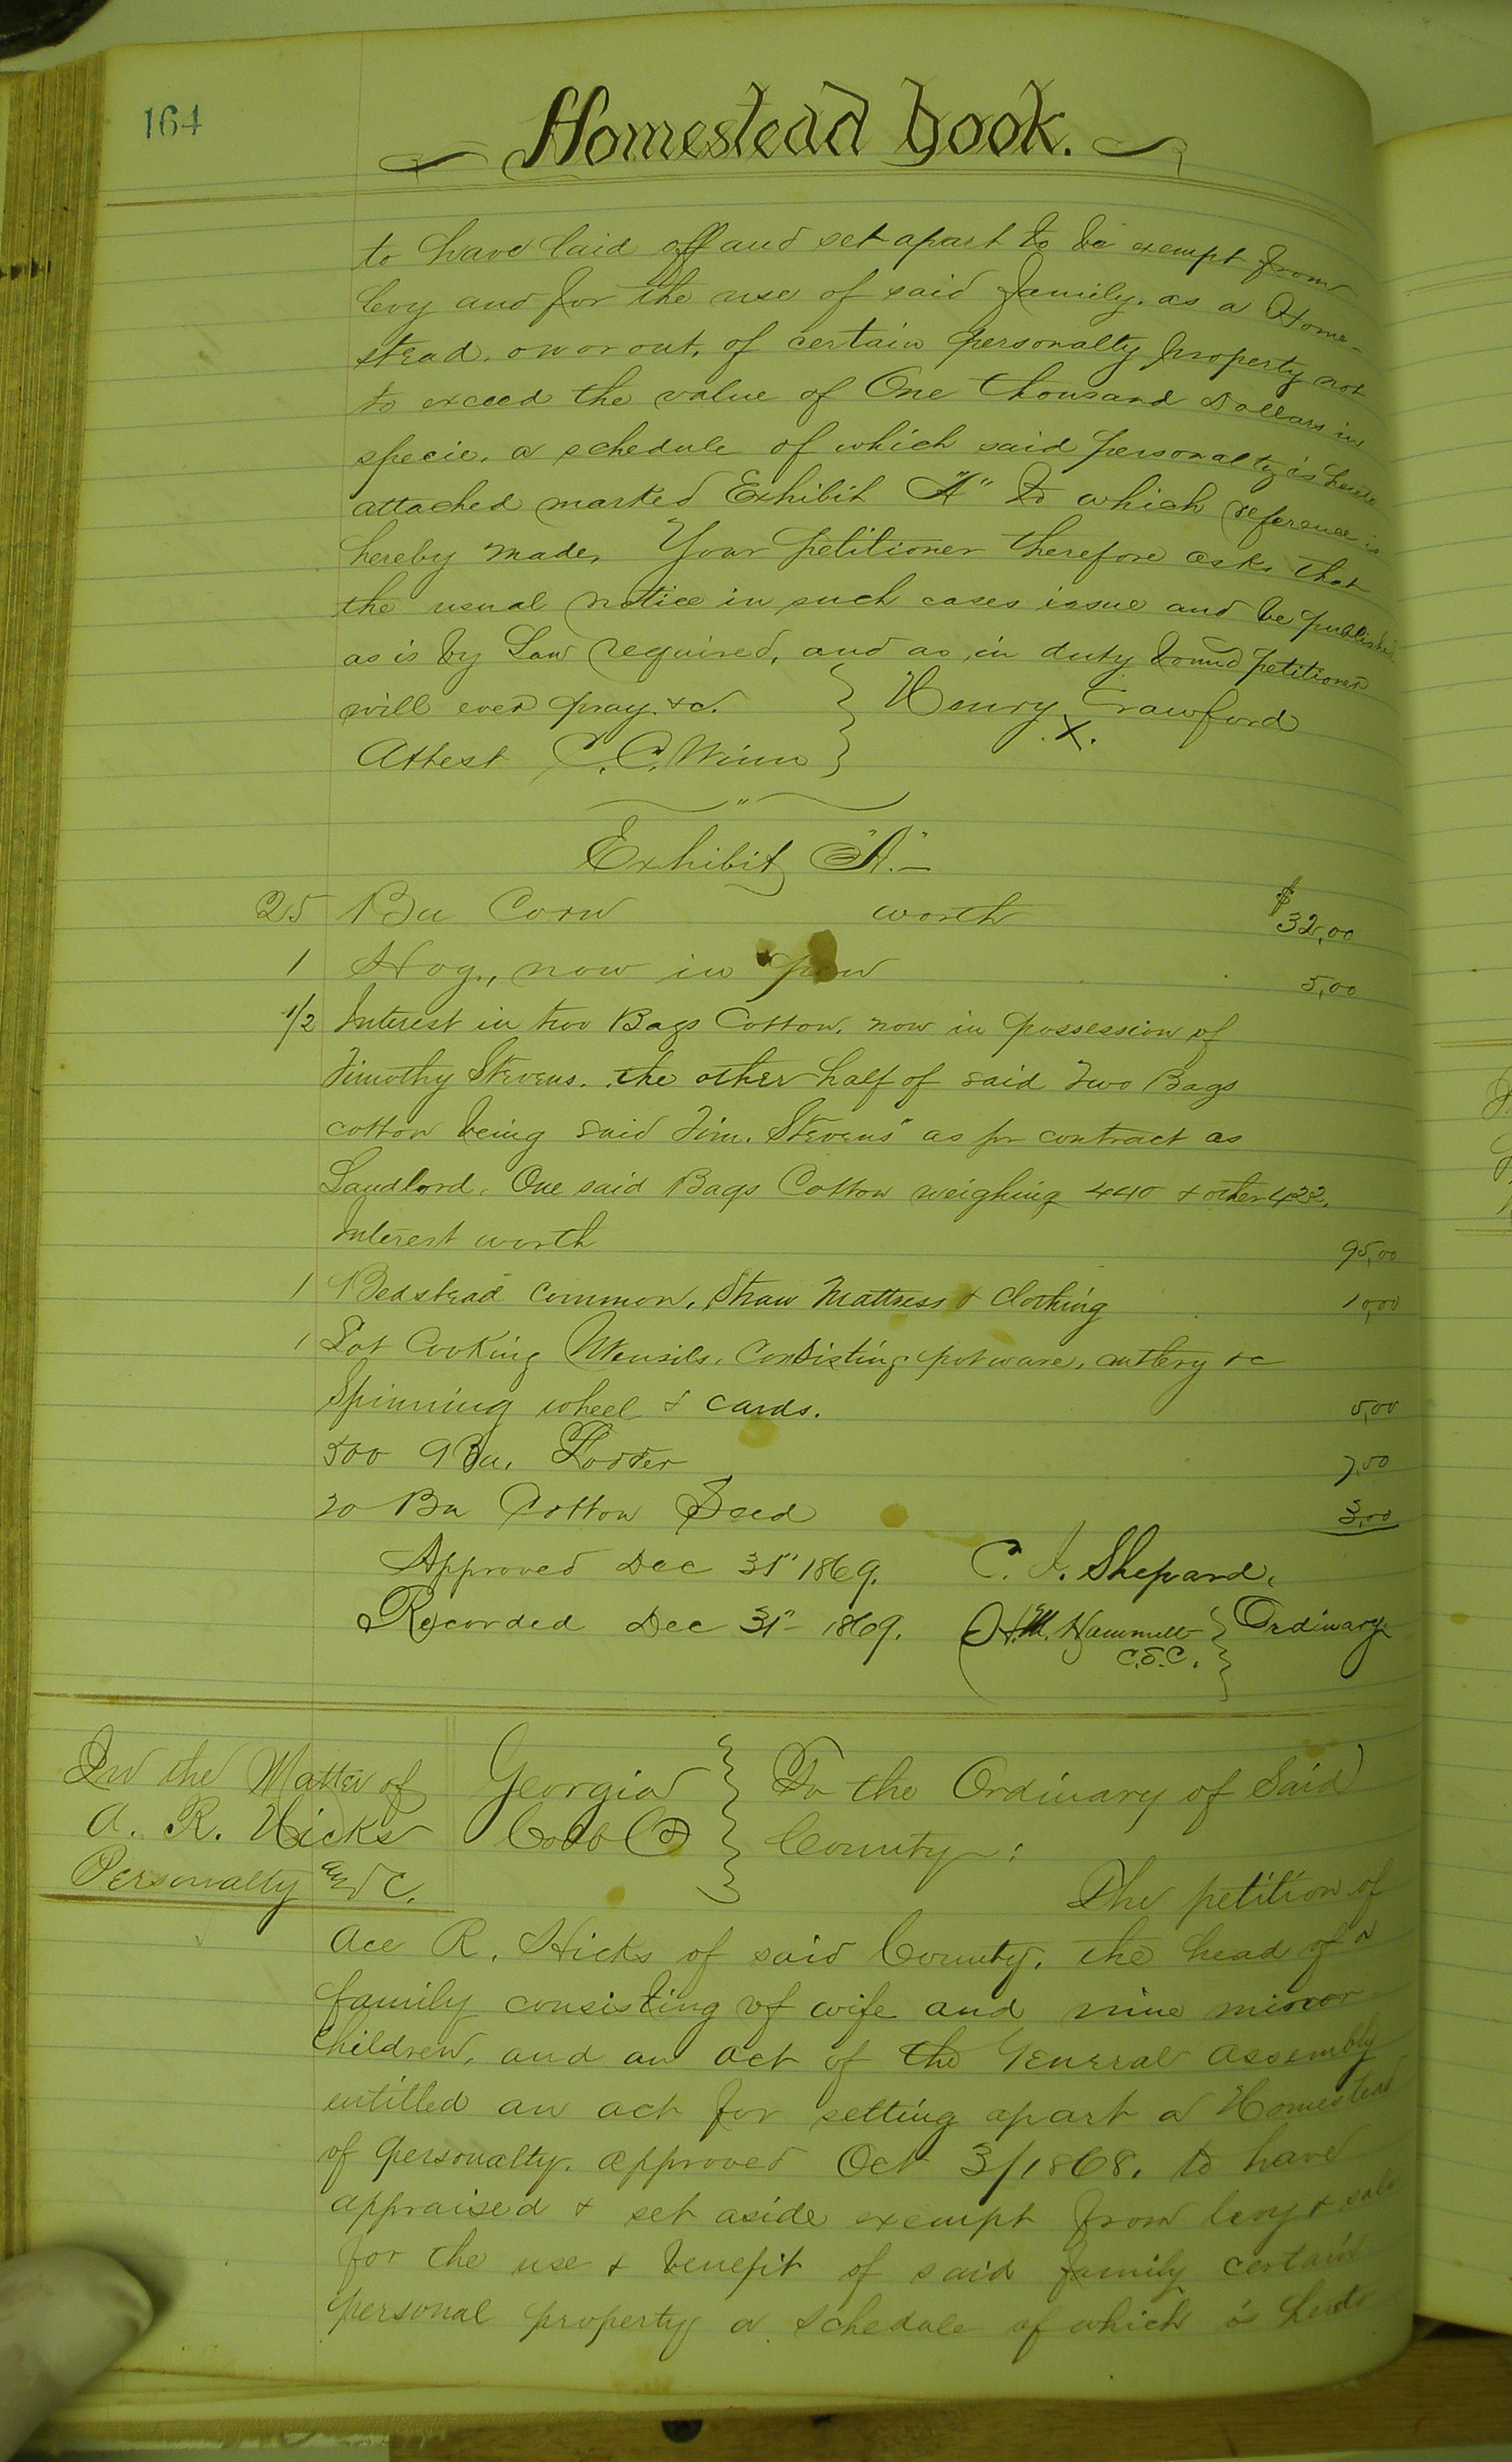 164
Homestead Book.
to have laid off and set apart to be exempt from
levy and for the use of said family, as a Home-
stead, on or out, of certain personalty property not
to exceed the value of One thousand Dollars in
specie, a schedule of which said personalty is hereto
attached marked Exhibit "A" to which reference is
hereby made, Your petitioner therefore asks that
the usual notice in such cases issue and be published
as is by Law required, and as in duty bound petitioner
will ever pray. &c. } Henry Crawford
Attest C. C. Winn } X.
Exhibit "A".
25 Bu Corn worth $32,00
1 Hog, now in pen 5,00
1/2 Interest in two Bags Cotton, now in possession of
Timothy Stevens. the other half of said Two Bags
cotton being said Tim. Stevens" as pr contract as
Landlord, One said Bags Cotton weighing 440 & other 422,
Interest worth 95,00
1 Bedstead common, Straw Mattress & Clothing 10,00
1 Lot Cooking Utensils, Consisting pot ware, cutlery &c
Spinning wheel & cards. 5,00
500 Bu. Fodder 7,50
20 Bu Cotton Seed 3,00
Approved Dec 31" 1869. C. J. Shepard,
Recorded Dec 31" 1869. H. M. Hammett } Ordinary
C.S.C. }
In the Matter of
A. R. Hicks
Personalty and C.
Georgia } To the Ordinary of Said
Cobb Co } County:
The petition of
Ace R. Hicks of said County, the head of a
family consisting of wife and nine minor
Children, and an act of the General Assembly
entitled an act for setting apart a Homestead
of personalty, approved Oct 3/1868. to have
appraised & set aside exempt from levy & sale
for the use & benefit of said family certain
personal property a schedule of which is hereto